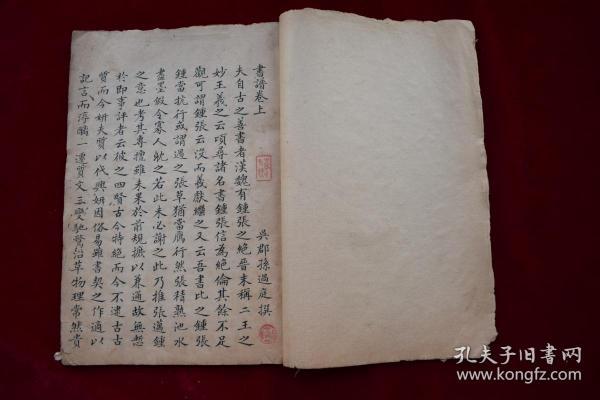 書譜卷上
吳郡孫過庭撰
夫自古之善書者漢魏有鍾張之絕晉末稱二王之
妙王羲之云頃尋諸名書鍾張信為絕倫其餘不足
觀可謂鍾張云沒而羲獻繼之又云吾書比之鍾張
鍾當抗行或謂過之張草猶當鴈行然張精熟池水
盡墨假令寡人躭之若此未必謝之此乃推張邁鍾
之意也考其專擅雖未果於前規摭以兼通故無慙
於即事評者云彼之四賢古今特絕而今不逮古古
質而今妍夫質以代興妍因俗易雖書契之作適以
記言而淳醨一遷質文三變馳騖沿革物理常然貴
孔夫子旧书网
www.kongfz.com